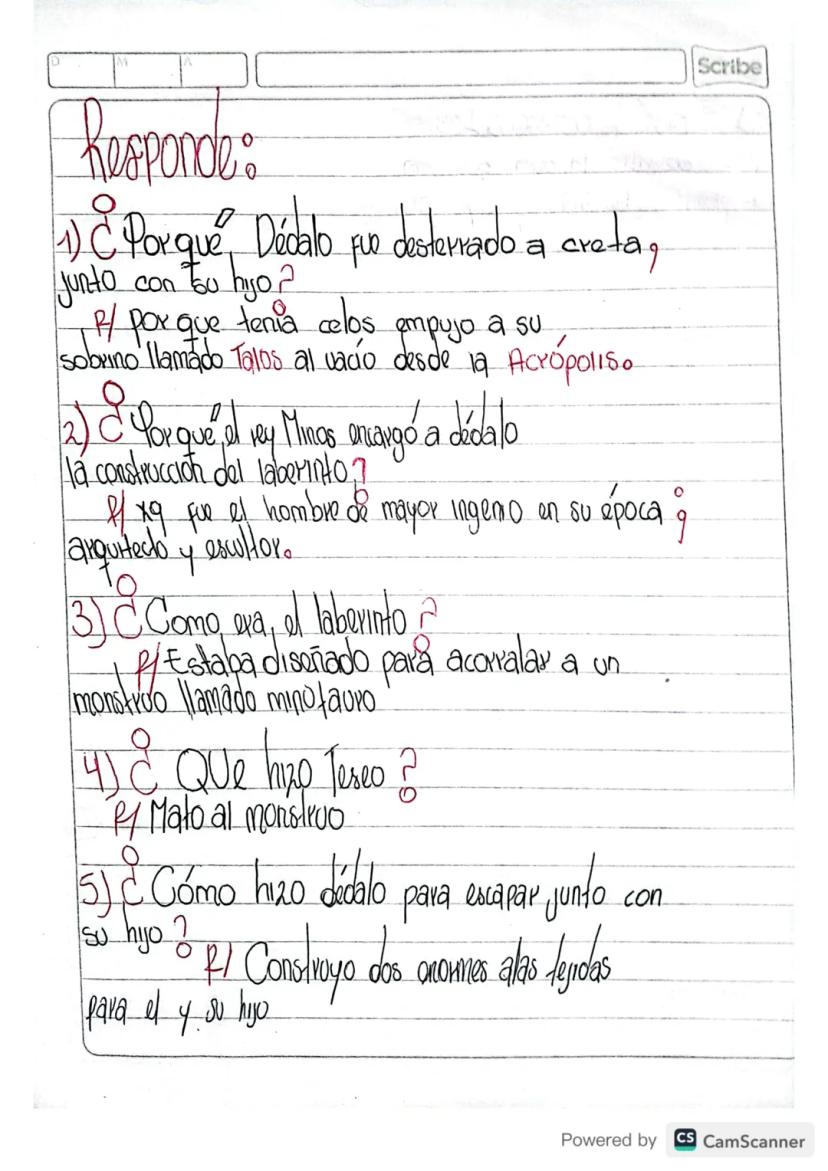 D M A Scribe
Responde:
1) ¿Porqué, Dédalo fue desterrado a creta,
junto con su hijo?
R/ porque tenia celos empujo a su
sobrino llamado Talos al vacío desde la Acrópolis.
2) ¿Porqué, el rey Minos encargó a dédalo
la construcción del laberinto?
R/ xq fue el hombre de mayor ingenio en su época ;
arquitecto y escultor.
3) ¿Como era, el laberinto?
R/ Estaba diseñado para acorralar a un
monstruo llamado minotauro
4) ¿ QUe hizo Teseo ?
R/ Mato al monstruo
5) ¿Cómo hizo dédalo para escapar junto con
su hijo?
R/ Construyo dos enormes alas tejidas
para el y su hijo
Powered by CS CamScanner